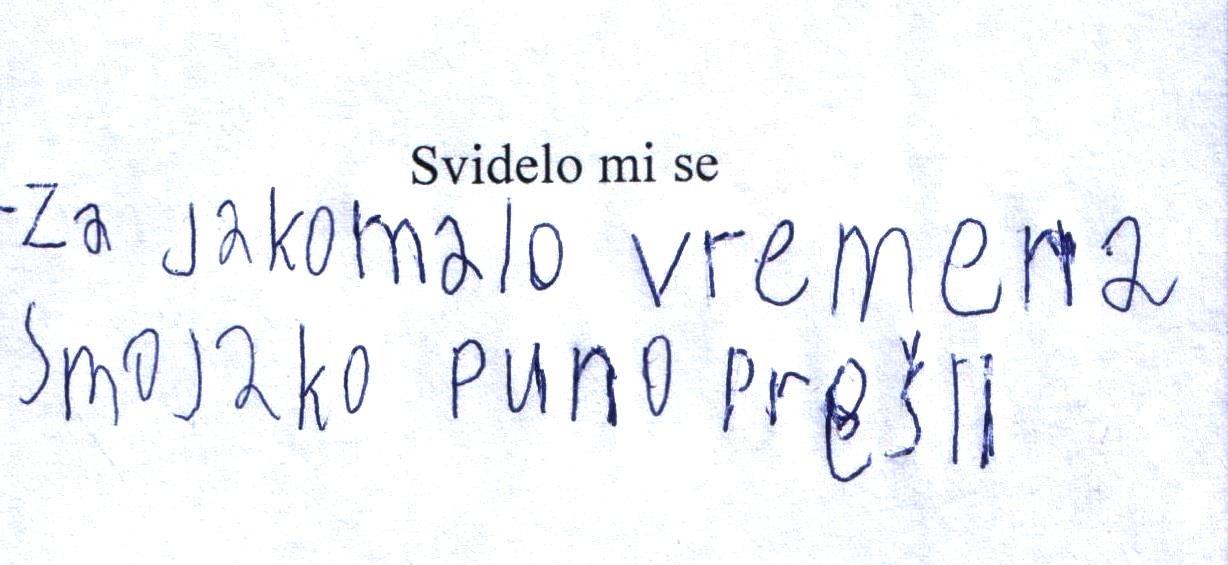 Svidelo mi se
-Za jakomalo vremena
Smojako puno prešli